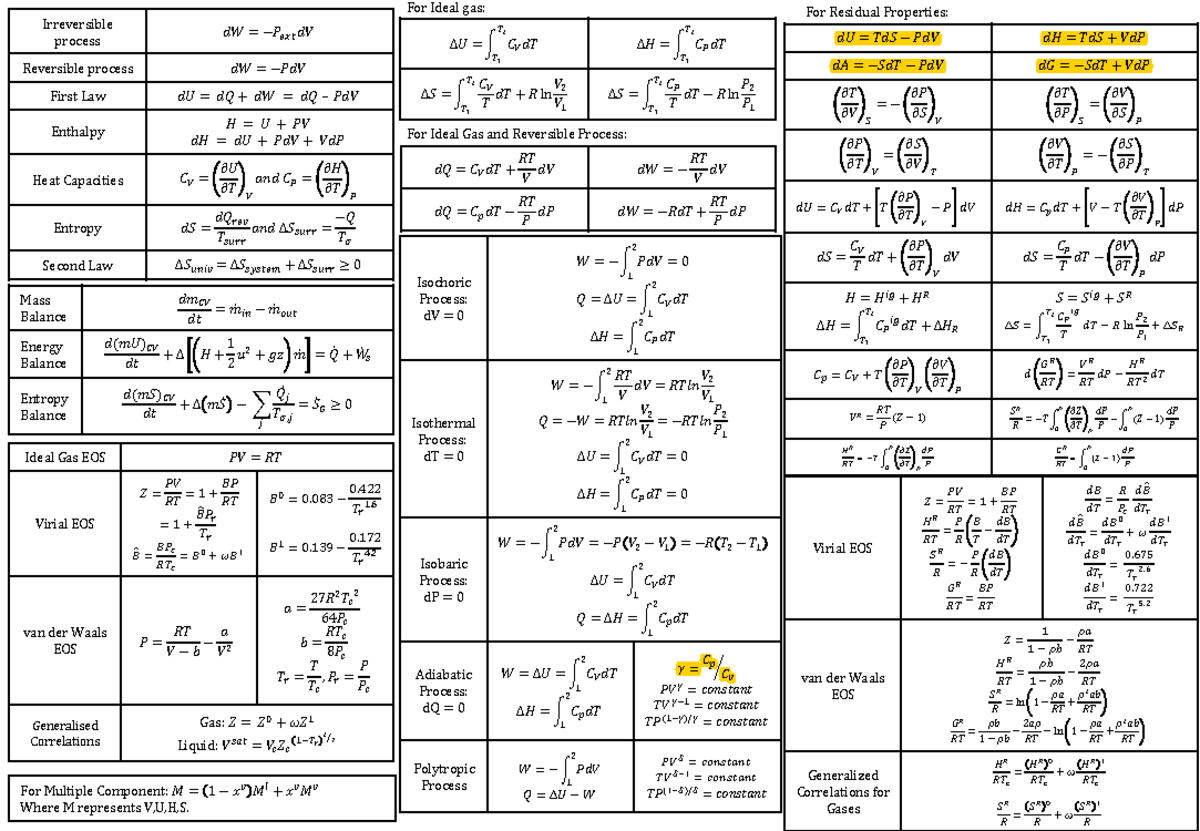 Irreversible process dW = −P_ext dV
Reversible process dW = −PdV
First Law dU = dQ + dW = dQ - PdV
Enthalpy H = U + PV
dH = dU + PdV + VdP
Heat Capacities C_V = (∂U/∂T)_V and C_P = (∂H/∂T)_P
Entropy dS = dQ_rev/T_surr and ΔS_surr = −Q/T_σ
Second Law ΔS_univ = ΔS_system + ΔS_surr ≥ 0
Mass Balance dm_CV/dt = ṁ_in − ṁ_out
Energy Balance d(mU)_CV/dt + Δ[(H + 1/2 u² + gz) ṁ] = Q̇ + Ẇ_s
Entropy Balance d(mS)_CV/dt + Δ(mṠ) − ∑_j Q̇_j/T_σ,j = Ṡ_G ≥ 0
Ideal Gas EOS PV = RT
Virial EOS
Z = PV/RT = 1 + BP/RT
= 1 + B̂P_r/T_r
B̂ = BP_c/RT_c = B⁰ + ωB¹
B⁰ = 0.083 − 0.422/T_r^1.6
B¹ = 0.139 − 0.172/T_r^4.2
van der Waals EOS
P = RT/(V − b) − a/V²
a = 27R²T_c²/64P_c
b = RT_c/8P_c
T_r = T/T_c, P_r = P/P_c
Generalised Correlations
Gas: Z = Z⁰ + ωZ¹
Liquid: V^sat = V_c Z_c^(1−T_r)^2/7
For Multiple Component: M = (1 − x^v)M^l + x^v M^v
Where M represents V,U,H,S.
For Ideal gas:
ΔU = ∫_T₁^T₂ C_V dT ΔH = ∫_T₁^T₂ C_P dT
ΔS = ∫_T₁^T₂ C_V/T dT + R ln V₂/V₁ ΔS = ∫_T₁^T₂ C_P/T dT − R ln P₂/P₁
For Ideal Gas and Reversible Process:
dQ = C_V dT + RT/V dV dW = −RT/V dV
dQ = C_p dT − RT/P dP dW = −RdT + RT/P dP
Isochoric Process: dV = 0
W = −∫₁² PdV = 0
Q = ΔU = ∫₁² C_V dT
ΔH = ∫₁² C_P dT
Isothermal Process: dT = 0
W = −∫₁² RT/V dV = RT ln V₂/V₁
Q = −W = RT ln V₂/V₁ = −RT ln P₂/P₁
ΔU = ∫₁² C_V dT = 0
ΔH = ∫₁² C_P dT = 0
Isobaric Process: dP = 0
W = −∫₁² PdV = −P(V₂ − V₁) = −R(T₂ − T₁)
ΔU = ∫₁² C_V dT
Q = ΔH = ∫₁² C_p dT
Adiabatic Process: dQ = 0
W = ΔU = ∫₁² C_V dT
ΔH = ∫₁² C_p dT
γ = C_p/C_v
PV^γ = constant
TV^γ−1 = constant
TP^(1−γ)/γ = constant
Polytropic Process
W = −∫₁² PdV
Q = ΔU − W
PV^δ = constant
TV^δ−1 = constant
TP^(1−δ)/δ = constant
For Residual Properties:
dU = TdS − PdV dH = TdS + VdP
dA = −SdT − PdV dG = −SdT + VdP
(∂T/∂V)_S = −(∂P/∂S)_V (∂T/∂P)_S = (∂V/∂S)_P
(∂P/∂T)_V = (∂S/∂V)_T (∂V/∂T)_P = −(∂S/∂P)_T
dU = C_V dT + [T(∂P/∂T)_V − P] dV dH = C_p dT + [V − T(∂V/∂T)_P] dP
dS = C_V/T dT + (∂P/∂T)_V dV dS = C_p/T dT − (∂V/∂T)_P dP
H = H^ig + H^R S = S^ig + S^R
ΔH = ∫_T₁^T₂ C_P^ig dT + ΔH_R ΔS = ∫_T₁^T₂ C_P^ig/T dT − R ln P₂/P₁ + ΔS_R
C_p = C_V + T(∂P/∂T)_V (∂V/∂T)_P d(G^R/RT) = V^R/RT dP − H^R/RT² dT
V^R = RT/P (Z − 1) S^R/R = −T∫₀^P (∂Z/∂T)_P dP/P − ∫₀^P (Z − 1) dP/P
H^R/RT = −T∫₀^P (∂Z/∂T)_P dP/P G^R/RT = ∫₀^P (Z − 1) dP/P
Virial EOS
Z = PV/RT = 1 + BP/RT
H^R/RT = P/R (B/T − dB/dT)
S^R/R = −P/R (dB/dT)
G^R/RT = BP/RT
dB/dT = R/P_c dB̂/dT_r
dB̂/dT_r = dB⁰/dT_r + ω dB¹/dT_r
dB⁰/dT_r = 0.675/T_r^2.6
dB¹/dT_r = 0.722/T_r^5.2
van der Waals EOS
Z = 1/(1 − ρb) − ρa/RT
H^R/RT = ρb/(1 − ρb) − 2ρa/RT
S^R/R = ln(1 − ρa/RT + ρ²ab/RT)
G^R/RT = ρb/(1 − ρb) − 2aρ/RT − ln(1 − ρa/RT + ρ²ab/RT)
Generalized Correlations for Gases
H^R/RT_c = (H^R)⁰/RT_c + ω (H^R)¹/RT_c
S^R/R = (S^R)⁰/R + ω (S^R)¹/R